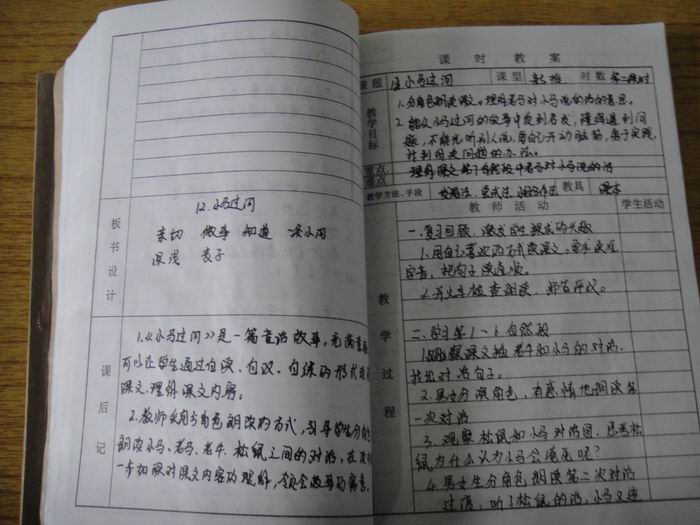 板书设计
12.小马过河
亲切 做事 知道
深浅
课后记
1.《小马过河》是一篇童话故事,充满童
可以让学生通过自读、自议、自练的形式
课文.理解课文内容。
2.教师采用分角色朗读的方式,引导学生分角
朗读小马、老马、老牛、松鼠之间的对话,在
一步加深对课文内容的理解,领会故事的寓意。
课时教案
课题 12小马过河 课型 新授 时数 第二课时
教学目标
1.分角色朗读课文。理解老马对小马说的话的意思。
2.能从小马过河的故事中受到启发,懂得遇到问
题,不能光听别人说,要自己开动脑筋,勇于实践,
找到解决问题的办法。
重点、难点 理解课文第 自然段中老马对小马说的话
教学方法、手段 教具 课本
教师活动 学生活动
教学过程
一.复习回顾,激发学生 兴趣
1.用自己喜欢的方式读课文。要求读准
字音,把句子读通顺。
2.开火车检查朗读,师生评议。
二.学习第1~6自然段
1.观察课文插 老牛和小马的对话.
找出对话句子。
2.男女分演角色,有感情地朗读第
一次对话
3.观察松鼠和小马对话图,思考松
鼠为什么认为小马会淹死呢?
4.男女生分角色朗读第二次对话
过渡,听了松鼠的话,小马又